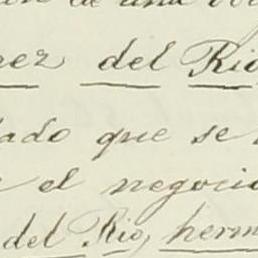 de una
ez del Rio
ado que se
el negocio
del Rio, herm